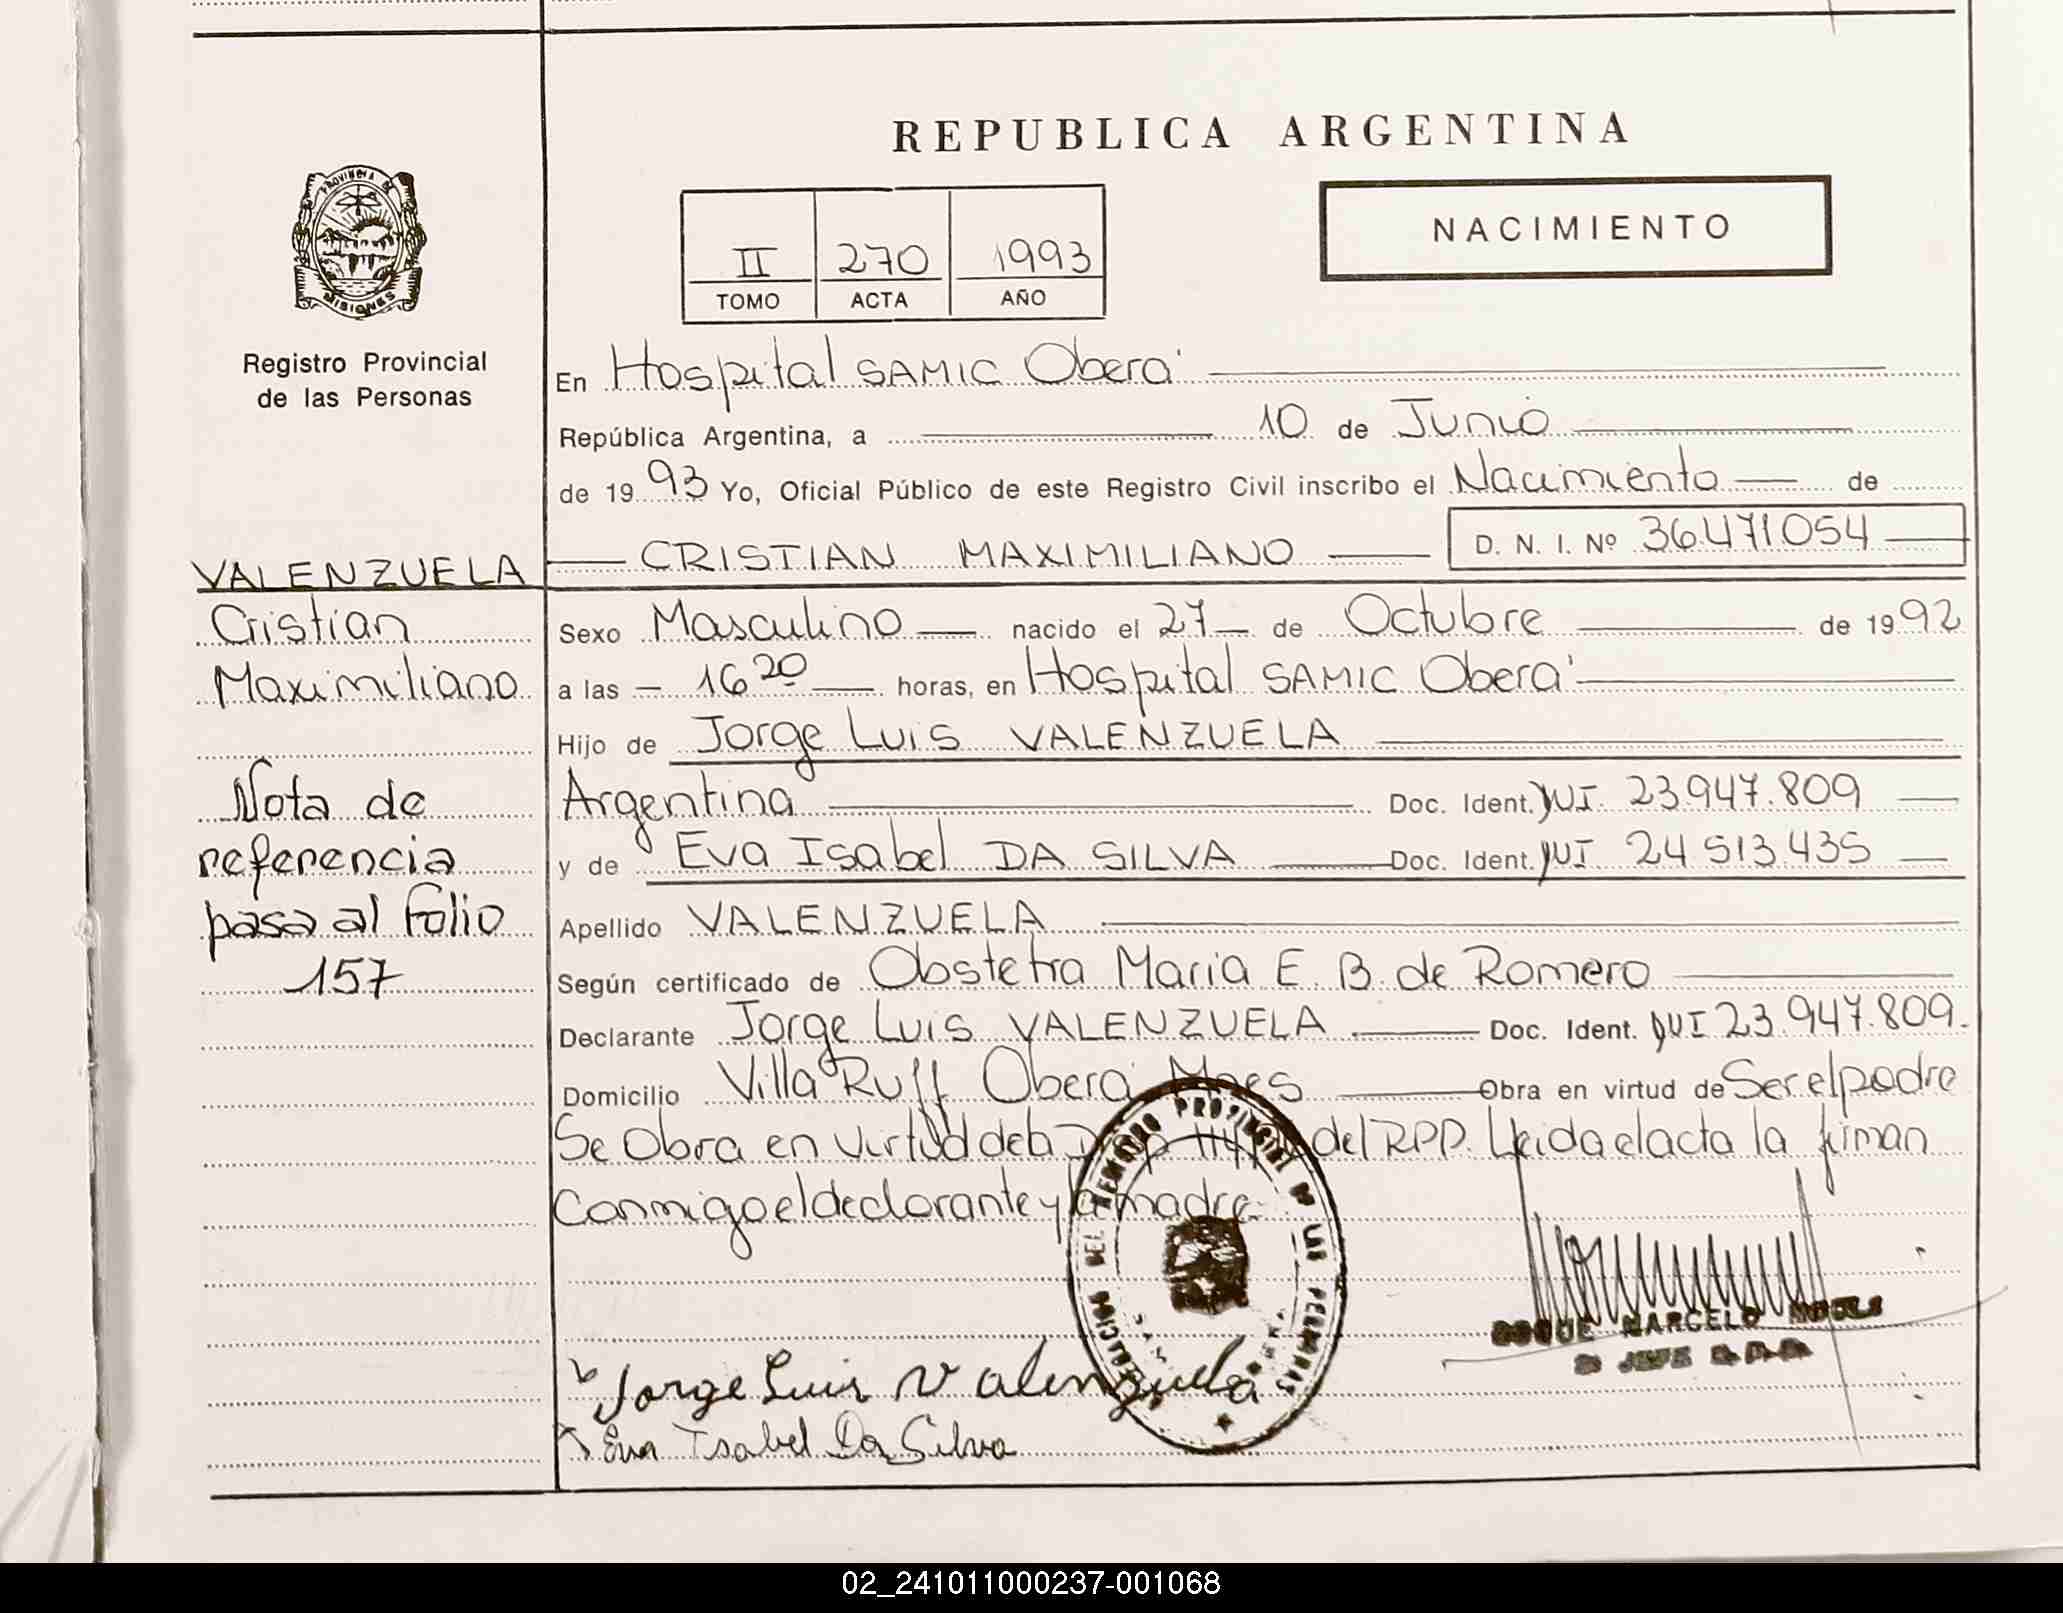 REPUBLICA ARGENTINA
PROVINCIA DE
MISIONES
Registro Provincial
de las Personas
NACIMIENTO
II 270 1993
TOMO ACTA AÑO
En Hospital SAMIC Oberá
República Argentina, a 10 de Junio
de 1993 Yo, Oficial Público de este Registro Civil inscribo el Nacimiento de
CRISTIAN MAXIMILIANO D. N. I. Nº 36.471.054
Sexo Masculino nacido el 27 de Octubre de 1992
a las 16 20 horas, en Hospital SAMIC Oberá
Hijo de Jorge Luis VALENZUELA
Argentina Doc. Ident. DNI. 23.947.809
y de Eva Isabel DA SILVA Doc. Ident. DNI 24.513.435
Apellido VALENZUELA
Según certificado de Obstetra Maria E. B. de Romero
Declarante Jorge Luis VALENZUELA Doc. Ident. DNI 23.947.809.
Domicilio Villa Ruff Oberá Mnes Obra en virtud de Ser el padre
Se Obra en virtud de la del RPP. Leida el acta la firman
Conmigo el declarante y la madre
VALENZUELA
Cristian
Maximiliano
Nota de
referencia
pasa al folio
157
DEL REGISTRO PROVINCIAL DE LAS PERSONAS
MARCELO
JEFE
Jorge Luis Valenzuela
Eva Isabel Da Silva
02_241011000237-001068